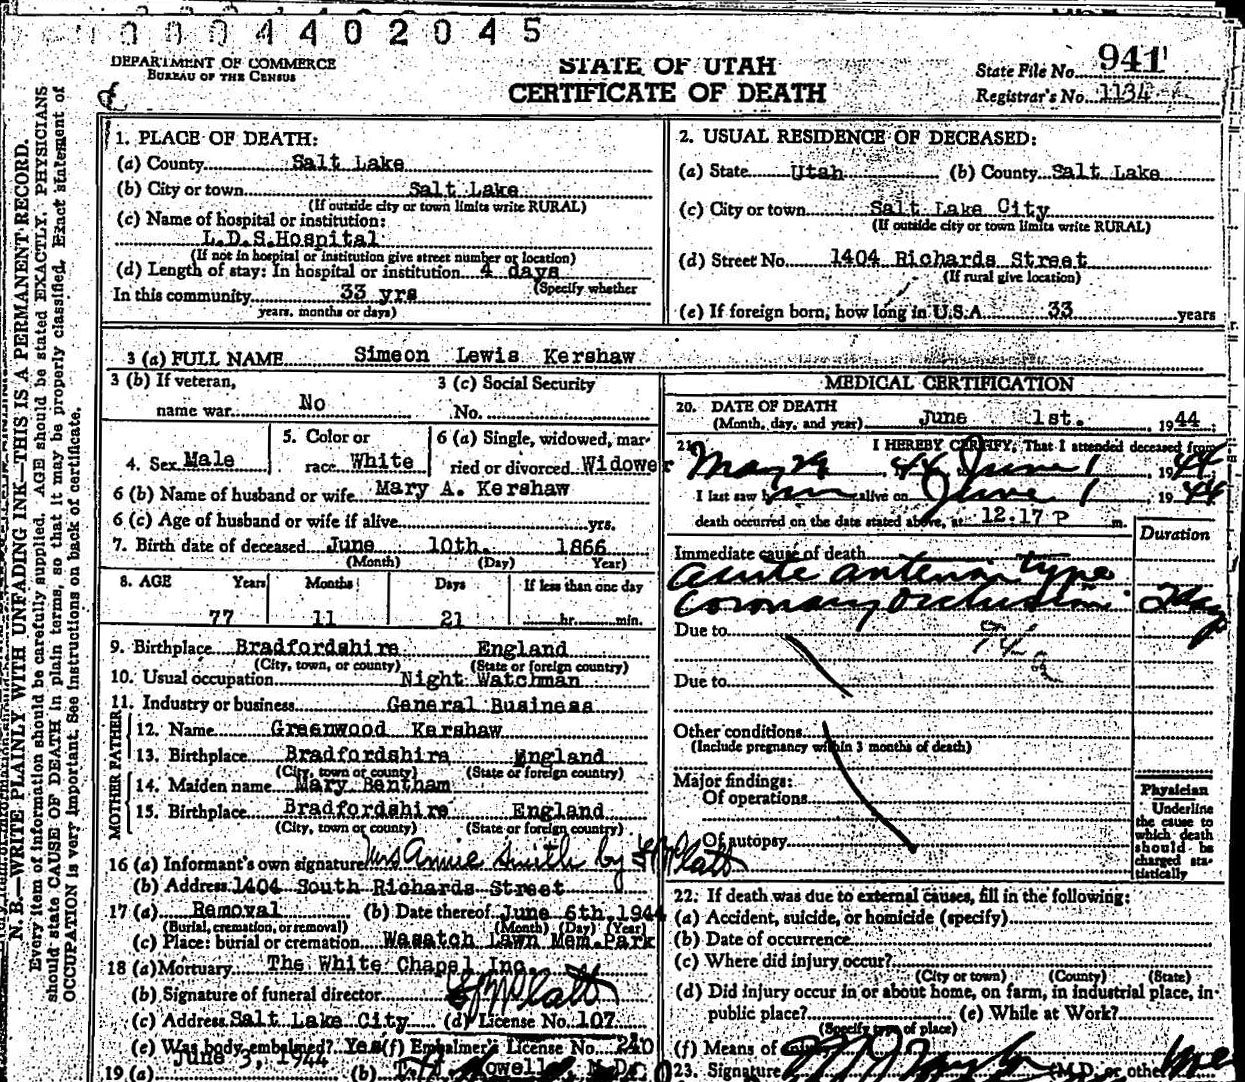 0004402045
DEPARTMENT OF COMMERCE
BUREAU OF THE CENSUS
STATE OF UTAH
CERTIFICATE OF DEATH
State File No. 941
Registrar's No. 1134
N. B.—WRITE PLAINLY WITH UNFADING INK—THIS IS A PERMANENT RECORD.
Every item of information should be carefully supplied. AGE should be stated EXACTLY. PHYSICIANS
should state CAUSE OF DEATH in plain terms, so that it may be properly classified. Exact statement of
OCCUPATION is very important. See instructions on back of certificate.
1. PLACE OF DEATH:
(a) County Salt Lake
(b) City or town Salt Lake
(If outside city or town limits write RURAL)
(c) Name of hospital or institution:
L.D.S.Hospital
(If not in hospital or institution give street number or location)
(d) Length of stay: In hospital or institution 4 days
(Specify whether
In this community 33 yrs
years, months or days)
2. USUAL RESIDENCE OF DECEASED:
(a) State Utah (b) County Salt Lake
(c) City or town Salt Lake City
(If outside city or town limits write RURAL)
(d) Street No. 1404 Richards Street
(If rural give location)
(e) If foreign born, how long in U.S.A. 33 years
3 (a) FULL NAME Simeon Lewis Kershaw
3 (b) If veteran, 3 (c) Social Security
name war No No.
4. Sex Male 5. Color or race White 6 (a) Single, widowed, mar-
ried or divorced Widower
6 (b) Name of husband or wife Mary A. Kershaw
6 (c) Age of husband or wife if alive yrs.
7. Birth date of deceased June 10th. 1866
(Month) (Day) Year)
8. AGE Years Months Days If less than one day
77 11 21 hr. min.
9. Birthplace Bradfordshire England
(City, town, or county) (State or foreign country)
10. Usual occupation Night Watchman
11. Industry or business General Business
FATHER
12. Name Greenwood Kershaw
13. Birthplace Bradfordshire England
(City, town or county) (State or foreign country)
MOTHER
14. Maiden name Mary Bentham
15. Birthplace Bradfordshire England
(City, town or county) (State or foreign country)
16 (a) Informant's own signature Mrs Annie Smith by
(b) Address 1404 South Richards Street
17 (a) Removal (b) Date thereof June 6th. 1944
(Burial, cremation, or removal) (Month) (Day) (Year)
(c) Place: burial or cremation Wasatch Lawn Mem.Park
18 (a) Mortuary The White Chapel Inc.
(b) Signature of funeral director
(c) Address Salt Lake City (d) License No. 107
(e) Was body embalmed? Yes (f) Embalmer's License No. 240
19 (a) June 3, 1944 (b)
MEDICAL CERTIFICATION
20. DATE OF DEATH
(Month, day, and year) June 1st. , 1944
21. I HEREBY CERTIFY, That I attended deceased from
May 29 44 June 1 1944
I last saw him alive on June 1 1944
death occurred on the date stated above, at 12:17 P m.
Duration
Immediate cause of death
acute anterior type
coronary occlusion
Due to
Due to
Other conditions
(Include pregnancy within 3 months of death)
Major findings:
Of operations
Of autopsy
Physician
Underline
the cause to
which death
should be
charged sta-
tistically
22. If death was due to external causes, fill in the following:
(a) Accident, suicide, or homicide (specify)
(b) Date of occurrence
(c) Where did injury occur?
(City or town) (County) (State)
(d) Did injury occur in or about home, on farm, in industrial place, in
public place? (e) While at Work?
(Specify type of place)
(f) Means of injury
23. Signature (M.D. or other